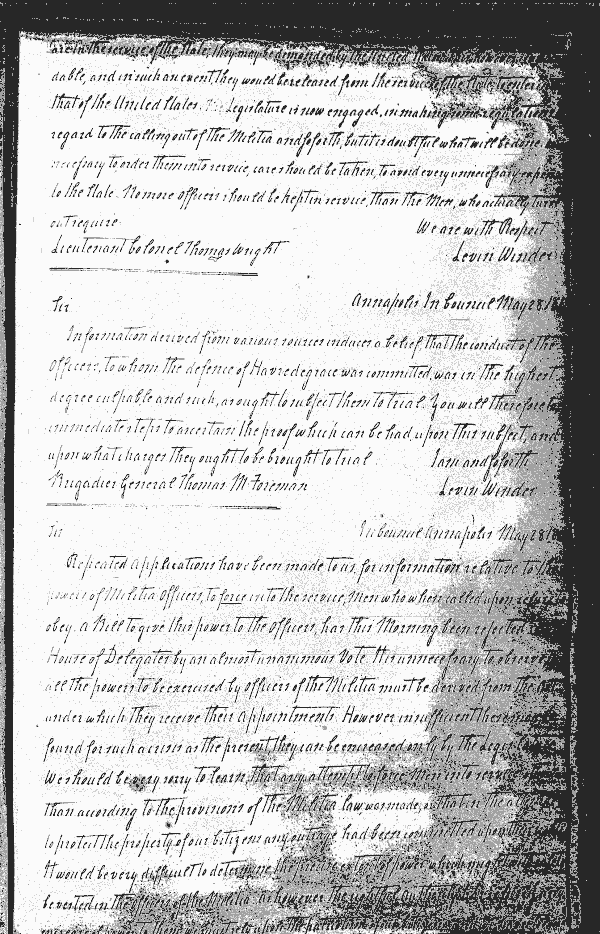 are in the service of the State, they may be demanded by the United
dable, and in such an event they would be released from the service of the State to enter
that of the United States. The Legislature is now engaged, in making some regulations
regard to the calling out of the Militia and so forth, but it is doubtful what will be done.
necessary to order them into service, care should be taken, to avoid every unnecessary expen
to the State. No more officers should be kept in service, than the Men, who actually turn
out require
We are with Respect
Lieutenant Colonel Thomas Wright
Levin Winder
Annapolis In Council May 28. 18
Sir
Information derived from various sources induces a belief, that the conduct of the
Officers, to whom the defence of Havredegrace was committed, was in the highest
degree culpable and such, as ought to subject them to trial. You will therefore
immediate steps to ascertain, the proof which can be had, upon this subject, and
upon what charges they ought to be brought to trial
I am and so forth
Brigadier General Thomas M Foreman
Levin Winder
In Council Annapolis May 28 18
Sir
Repeated applications have been made to us, for information relative to the
powers of Militia Officers, to force into the service, Men who when called upon refuse
obey. A Bill to give this power to the officers, has this Morning been rejected
House of Delegates by an almost unanimous Vote. It is unnecessary to observe
all the powers to be exercised by officers of the Militia must be derived from the
under which they receive their appointments. However insufficient these may
found for such a crisis as the present, they can be encreased only by the Legis
We should be very sorry to learn, that any attempt to force Men into service
than according to the provisions of the Militia law was made, or that in the
to protect the property of our Citizens any outrage had been committed upon
It would be very difficult to determine, the precise extent of power which might
be vested in the officers of the Militia. As however the